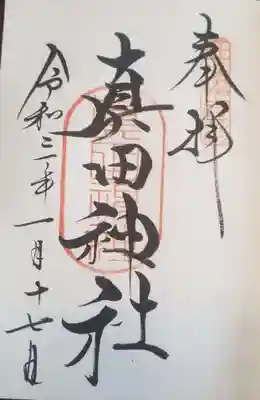 奉拝
眞田神社
令和三年一月十七日